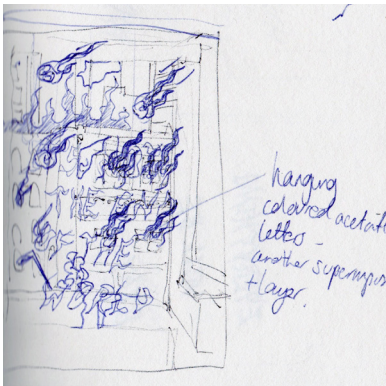 hanging
coloured acetate
letters -
another superimpos
+ layer.